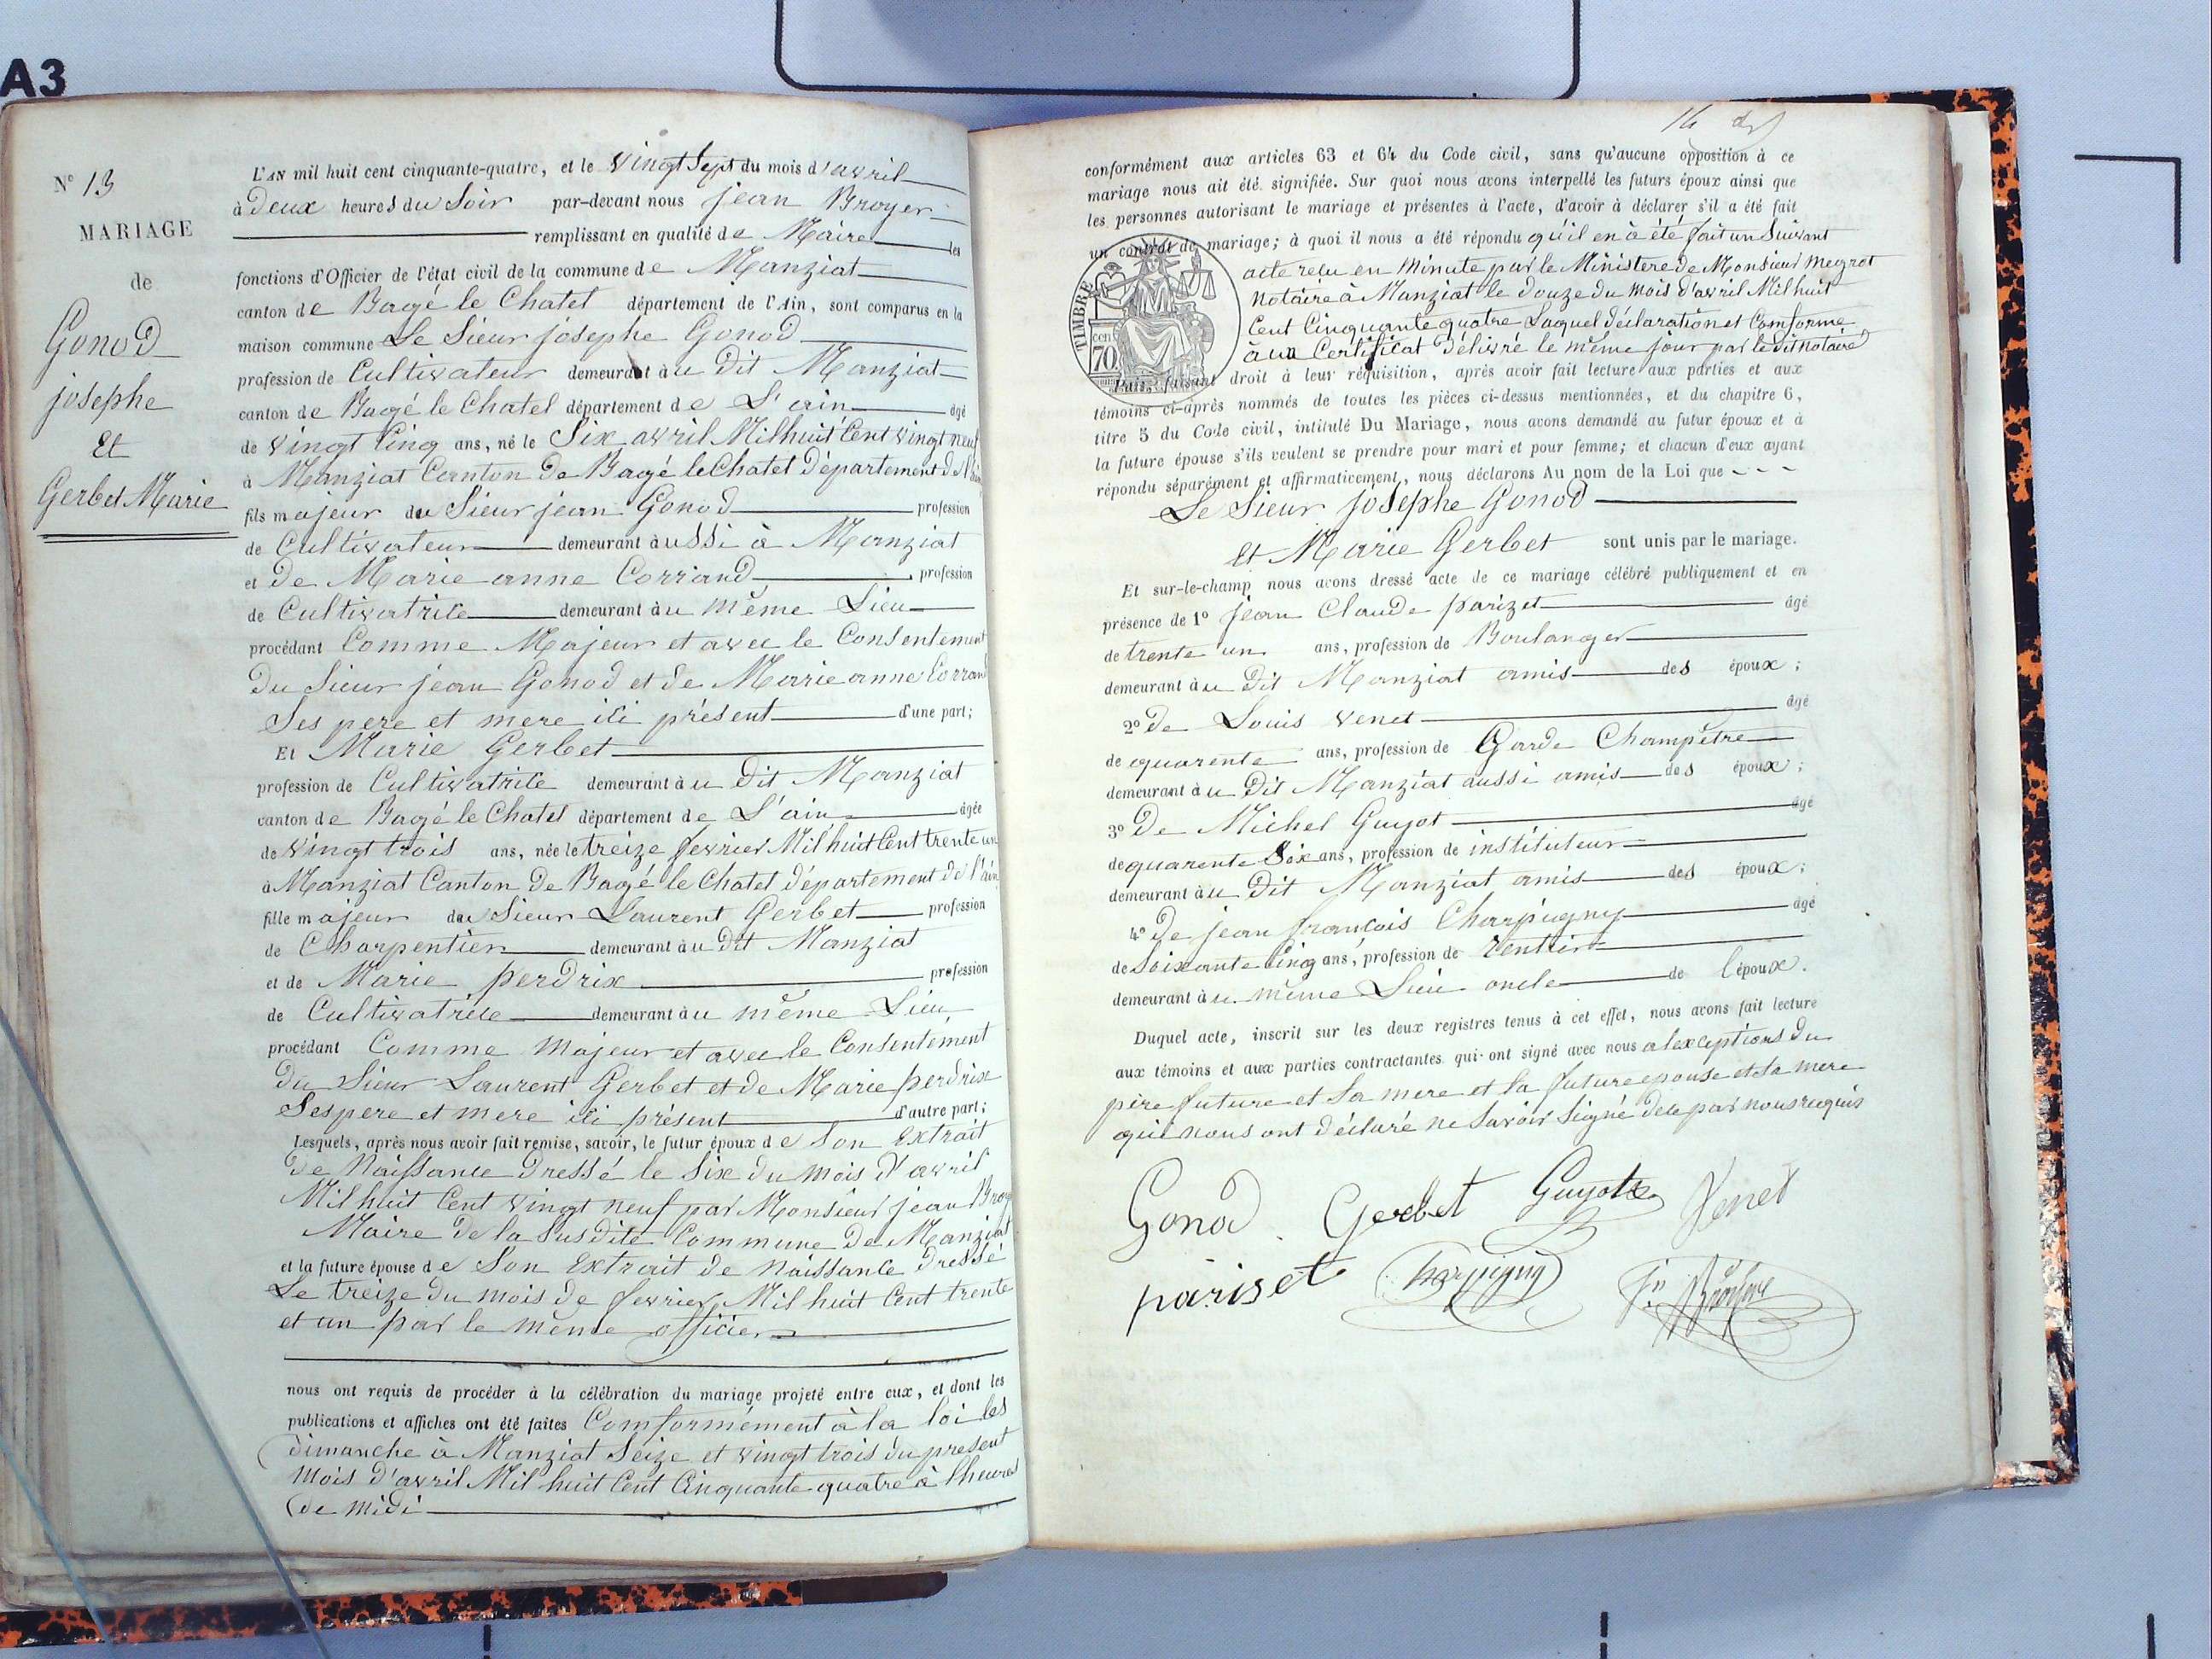 A3
N° 13
MARIAGE
de
Gonod
josephe
Et
Gerbet Marie
L'AN mil huit cent cinquante-quatre, et le vingt Sept du mois d'avril
à Deux heures du Soir par-devant nous jean Broyer
remplissant en qualité de Maire les
fonctions d'Officier de l'état civil de la commune de Manziat
canton de Bagé le Chatel département de l'Ain, sont comparus en la
maison commune Le Sieur josephe Gonod
profession de Cultivateur demeurant au dit Manziat
canton de Bagé le Chatel département de L'ain âgé
de vingt Cinq ans, né le Six avril Mil huit Cent vingt neuf
à Manziat Canton De Bagé le Chatel Département de l'ain
fils majeur du Sieur jean Gonod profession
de Cultivateur demeurant aussi à Manziat
et de Marie anne Corrand profession
de Cultivatrice demeurant au même Lieu
procédant Comme Majeur et avec le Consentement
Du Sieur jean Gonod et de Marie anne Corrand
Ses pere et mere ici présent d'une part;
Et Marie Gerbet
profession de Cultivatrice demeurant au dit Manziat
canton de Bagé le Chatel département de L'ain âgée
de vingt trois ans, née le treize fevrier Mil huit Cent trente un
à Manziat Canton De Bagé le Chatel département de l'ain
fille majeur du Sieur Laurent Gerbet profession
de Charpentier demeurant au dit Manziat
et de Marie perdrix profession
de Cultivatrice demeurant au même Lieu
procédant Comme Majeur et avec le Consentement
Du Sieur Laurent Gerbet et de Marie perdrix
Ses pere et mere ici présent d'autre part;
Lesquels, après nous avoir fait remise, savoir, le futur époux de Son Extrait
De Naissance Dressé le Six du mois d'avril
Mil huit Cent vingt neuf par Monsieur jean Broyer
Maire De la Susdite Commune De Manziat
et la future épouse de Son Extrait de Naissance Dressé
Le treize Du mois de fevrier Mil huit Cent trente
et un par le même officier
nous ont requis de procéder à la célébration du mariage projeté entre eux, et dont les
publications et affiches ont été faites Comformément à la loi les
dimanche à Manziat Seize et vingt trois du present
Mois d'avril Mil huit Cent Cinquante quatre à lheure
de Midi
14
conformément aux articles 63 et 64 du Code civil, sans qu'aucune opposition à ce
mariage nous ait été signifiée. Sur quoi nous avons interpellé les futurs époux ainsi que
les personnes autorisant le mariage et présentes à l'acte, d'avoir à déclarer s'il a été fait
un contrat de mariage; à quoi il nous a été répondu qu'il en à été fait un Suivant
acte recu en Minute par le Ministere De Monsieur Meyrot
Notaire à Manziat le douze du mois d'avril Mil huit
Cent Cinquante quatre Laquel déclaration et Comforme
à un Certificat Délivré le même jour par le dit notaire
TIMBRE
cen
70
Puis, faisant droit à leur réquisition, après avoir fait lecture aux parties et aux
témoins ci-après nommés de toutes les pièces ci-dessus mentionnées, et du chapitre 6,
titre 5 du Code civil, intitulé Du Mariage, nous avons demandé au futur époux et à
la future épouse s'ils veulent se prendre pour mari et pour femme; et chacun d'eux ayant
répondu séparément et affirmativement, nous déclarons Au nom de la Loi que
Le Sieur josephe Gonod
Et Marie Gerbet sont unis par le mariage.
Et sur-le-champ nous avons dressé acte de ce mariage célébré publiquement et en
présence de 1° jean Claude parizet âgé
de trente un ans, profession de Boulanger
demeurant au Dit Manziat amis des époux;
2° de Louis venet âgé
de quarente ans, profession de Garde Champêtre
demeurant au Dit Manziat aussi amis des époux;
3° De Michel Guyot âgé
de quarente Six ans, profession de instituteur
demeurant au Dit Manziat amis des époux;
4° De jean françois Charpigny âgé
de Soixante Cinq ans, profession de rentier
demeurant au même Lieu oncle de l'époux.
Duquel acte, inscrit sur les deux registres tenus à cet effet, nous avons fait lecture
aux témoins et aux parties contractantes qui ont signé avec nous alexceptions du
père future et Sa mere et la future epouse et Sa mere
qui nous ont déclaré ne Savoir Signé de ce par nous requis
Gonod Gerbet Guyot Venet
pariset Charpigny